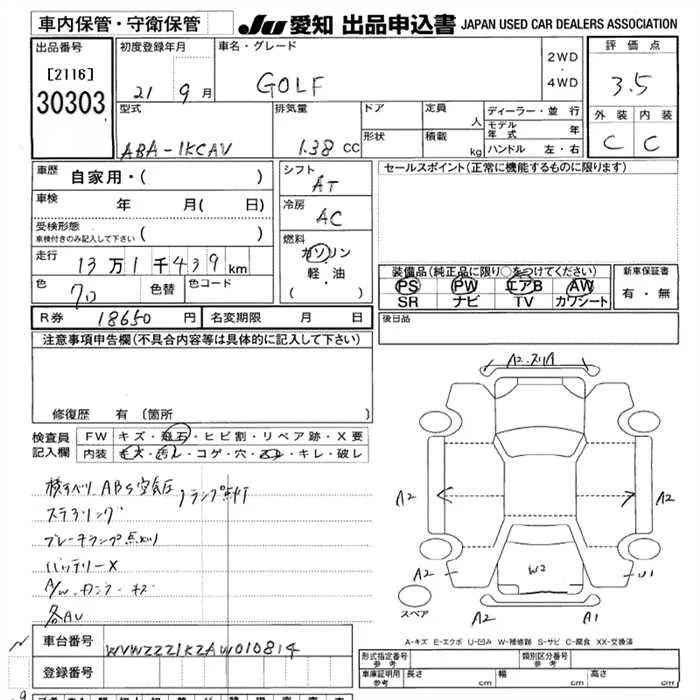 車内保管・守衛保管
JU 愛知 出品申込書 JAPAN USED CAR DEALERS ASSOCIATION
出品番号
[2116]
30303
初度登録年月
21 9月
車名・グレード
GOLF
2WD
・
4WD
評価点
3.5
外装 内装
C C
型式
ABA-1KCAV
排気量
1.38 CC
ドア
形状
定員 人
積載 kg
ディーラー・並行
モデル年式 年
ハンドル 左・右
車歴 自家用・( )
車検 年 月( 日)
受検形態
車検付きのみ記入して下さい ( )
走行 13万1千439km
色 色替 色コード
シフト
AT
冷房
AC
燃料
ガソリン
・
軽・油
( )
セールスポイント(正常に機能するものに限ります)
装備品(純正品に限り○をつけてください)
PS PW エアB AW
SR ナビ TV カワシート
新車保証書
有・無
R券 18650円
名変期限 月 日
後日品
注意事項申告欄(不具合内容等は具体的に記入して下さい)
修復歴 有 (箇所 )
検査員
記入欄
FW キズ・飛石・ヒビ割・リペア跡・X要
内装 キズ・汚レ・コゲ・穴・・キレ・破レ
ABS空気圧
ランプ点灯
ステアリング
ブレーキランプ
バッテリーX
A/W キズ
各AU
A2
A2
A2
A2
W2
U1
A2
A1
スペア
A-キズ E-エクボ U-凹み W-補修跡 S-サビ C-腐食 XX-交換済
車台番号 WVWZZZ1KZAW010814
登録番号
形式指定番号
参考
類別区分番号
参考
車庫証明用
参考
長さ cm 幅 cm 高さ cm